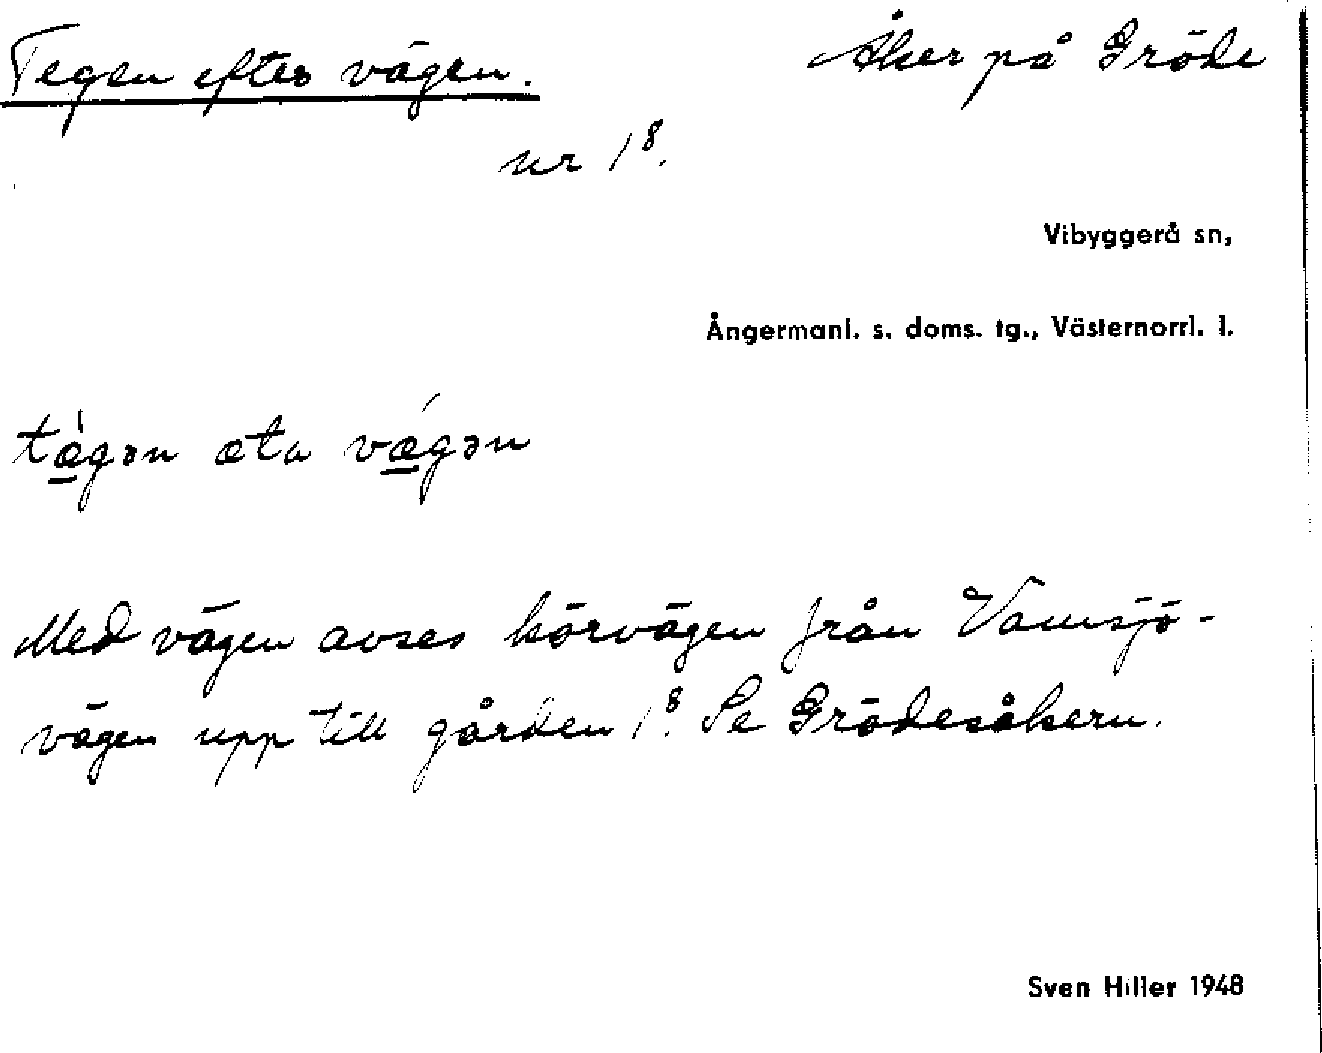 Tegen efter vägen. Åker på Gröde
nr 1⁸.
Vibyggerå sn,
Ångermanl. s. doms. tg., Västernorrl. l.
tæ̲̀gən æta vǽ̲gən
Med vägen avses körvägen från Vamsjö-
vägen upp till gården 1⁸. Se Grödesåkern.
Sven Hiller 1948